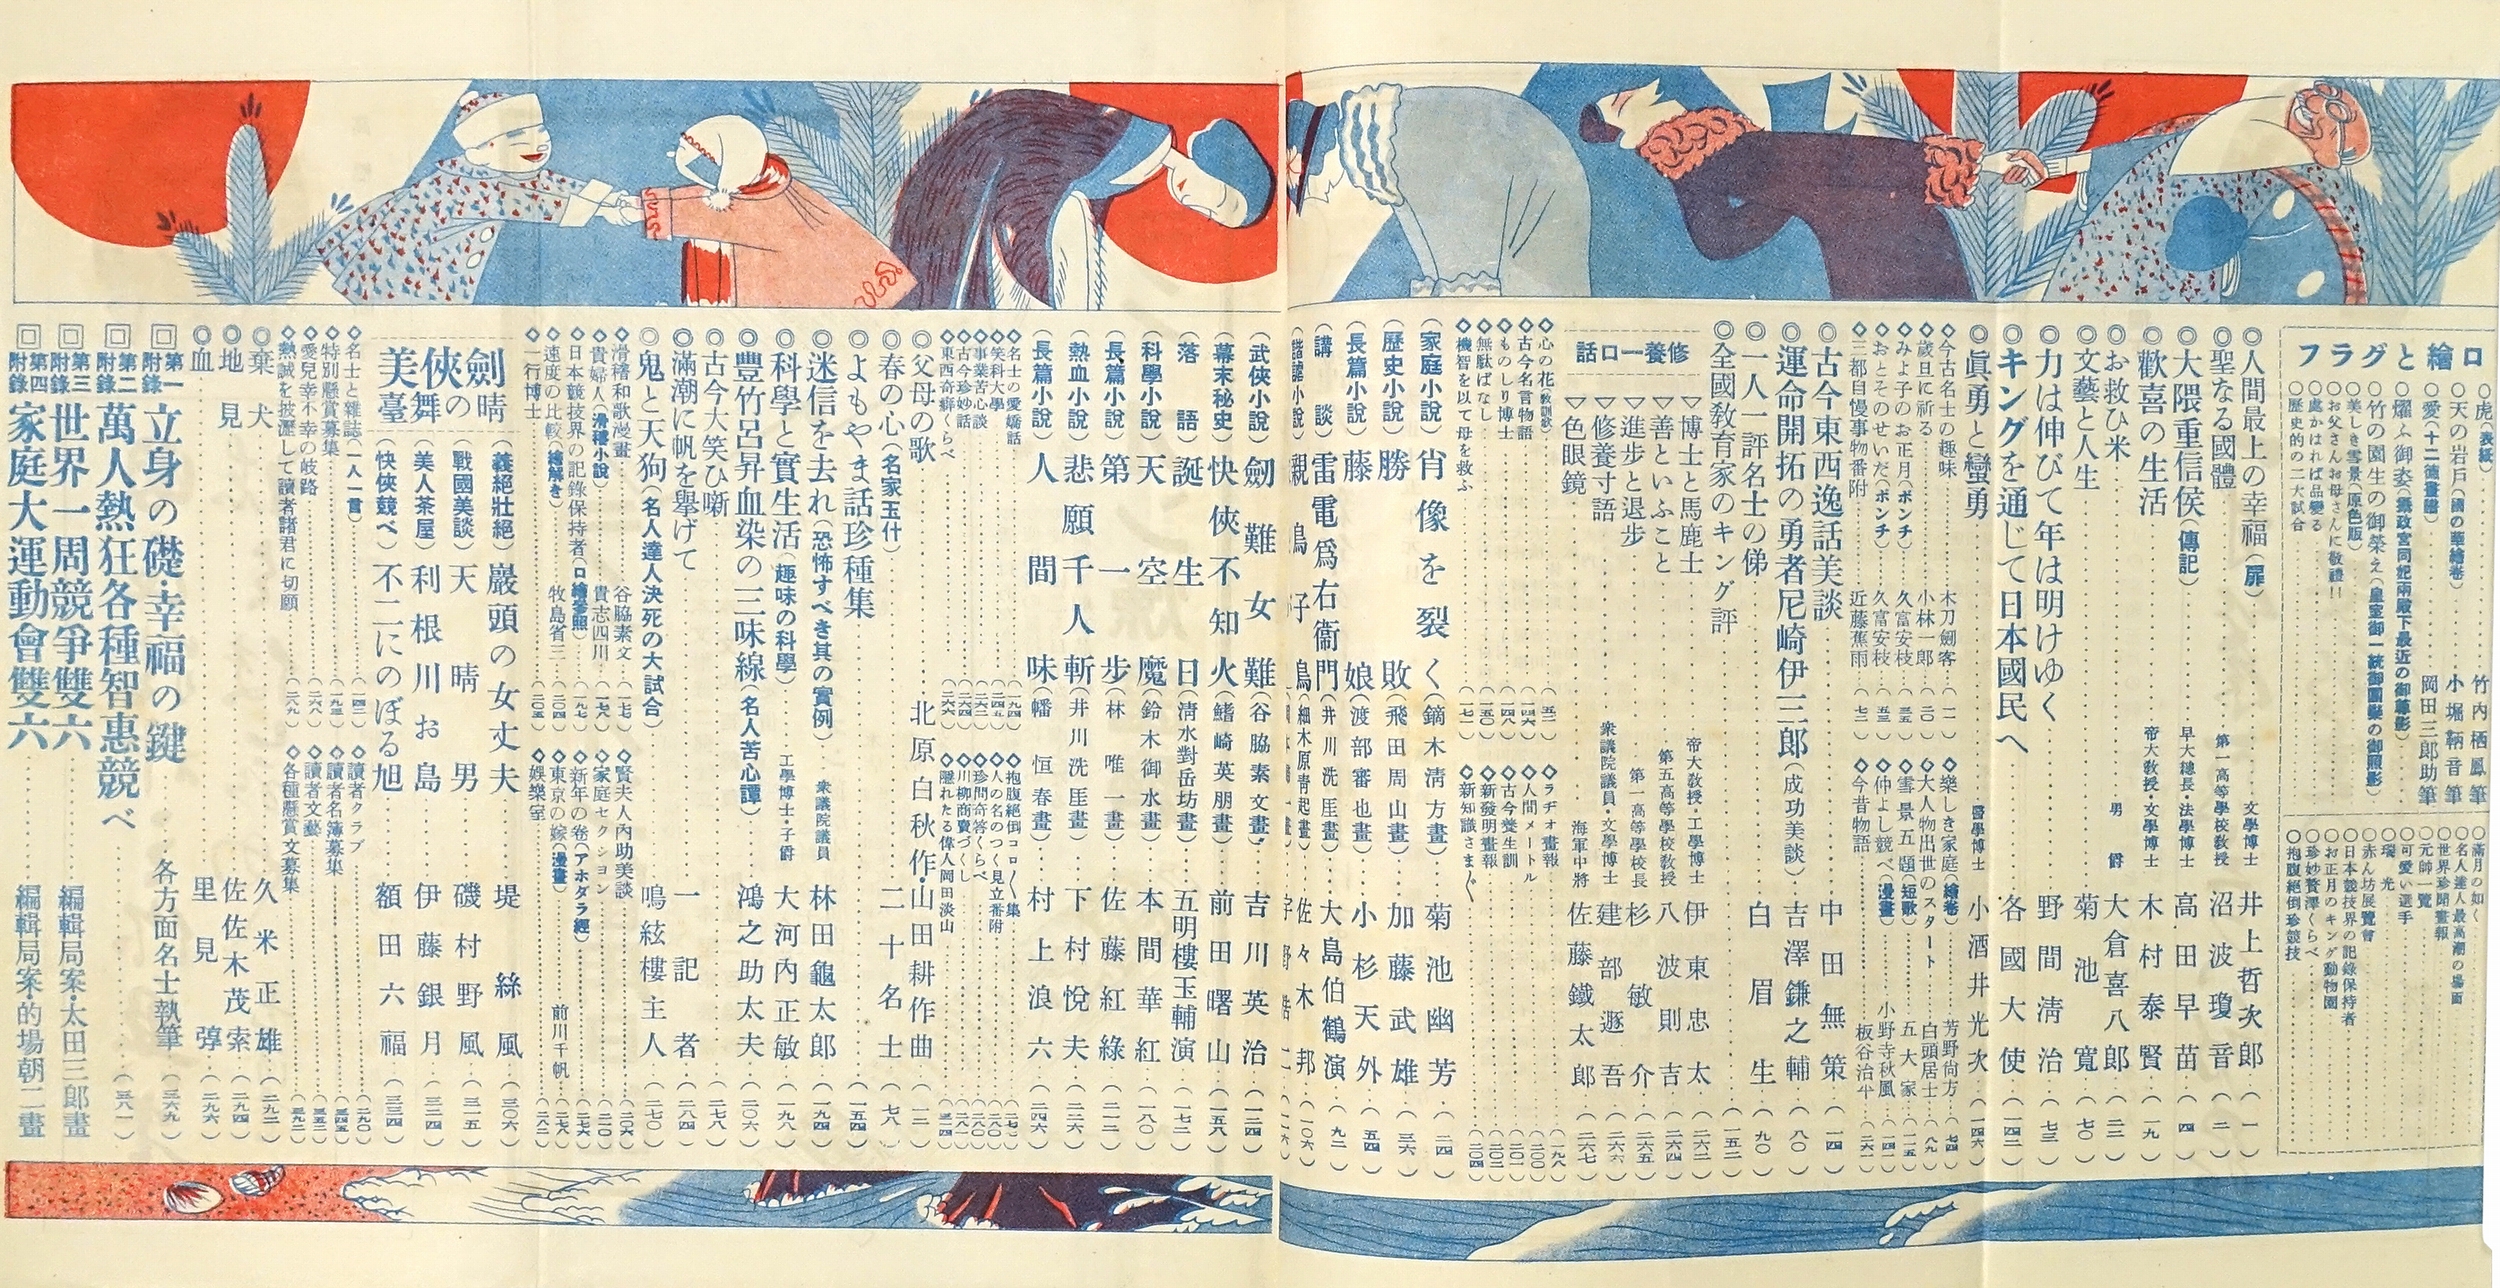 口繪とグラフ
○虎（表紙）……竹内栖鳳筆
○天の岩戸（國の華繪卷）……小堀鞆音筆
○愛（十二德畫譜）……岡田三郎助筆
○竹の園生の御榮え（皇室御一統御團欒の御照影）
○美しき雪景（原色版）
○お父さんお母さんに敬禮!!
○處かはれば品變る
○歷史的の二大試合
○滿月の如く
○名人達人最高潮の場面
○世界珍聞畫報
○元帥一覽
○可愛い選手
○瑞光
○赤ん坊展覽會
○日本競技界の記錄保持者
○お正月のキング動物園
○珍妙贅澤くらべ
○抱腹絕倒珍競技
◎人間最上の幸福（扉）……文學博士 井上哲次郎（一）
◎聖なる國體……第一高等學校敎授 沼波瓊音（二）
◎大隈重信侯（傳記）……早大總長・法學博士 高田早苗（四）
◎歡喜の生活……帝大敎授・文學博士 木村泰賢（一九）
◎お救ひ米……男爵 大倉喜八郎（二二）
◎文藝と人生……菊池寬（七〇）
◎力は伸びて年は明けゆく……野間淸治（七三）
◎キングを通じて日本國民へ……各國大使（一四二）
◎眞勇と蠻勇……醫學博士 小酒井光次（一四六）
◇今古名士の趣味……木刀劍客（一一）
◇歲旦に祈る……小林一郎（二〇）
◇みよ子のお正月（ポンチ）……久富安枝（三五）
◇おとそのせいだ（ポンチ）……久富安枝（五三）
◇三都自慢事物番附……近藤蕉雨（七二）
◇樂しき家庭（繪卷）……芳野尙方（七四）
◇大人物出世のスタート……白頭居士（八九）
◇雪景五題（短歌）……五大家（一一五）
◇仲よし競べ（漫畫）……小野寺秋風（一四一）
◇今昔物語……板谷治平（二六一）
◎古今東西逸話美談……中田無策（一四）
◎運命開拓の勇者尼崎伊三郎（成功美談）……吉澤鎌之輔（八〇）
◎一人一評名士の俤……白眉生（九〇）
◎全國敎育家のキング評……（一五二）
修養一口話
▽博士と馬鹿士……帝大敎授・工學博士 伊東忠太（二六二）
▽善といふこと……第五高等學校敎授 八波則吉（二六四）
▽進步と退步……第一高等學校長 杉敏介（二六五）
▽修養寸語……衆議院議員・文學博士 建部遯吾（二六六）
▽色眼鏡……海軍中將 佐藤鐵太郎（二六七）
◇心の花（敎訓歌）……（五二）
◇古今名言物語……（一四六）
◇ものしり博士……（一四八）
◇無駄ばなし……（一五〇）
◇機智を以て母を救ふ……（一七一）
◇ラヂオ畫報……（一九八）
◇人間メートル……（二〇〇）
◇古今養生訓……（二〇一）
◇新發明畫報……（二〇二）
◇新知識さま〴〵……（二〇四）
（家庭小說）肖像を裂く（鏑木淸方畫）……菊池幽芳（二四）
（歷史小說）勝敗（飛田周山畫）……加藤武雄（三六）
（長篇小說）藤娘（渡部審也畫）……小杉天外（五四）
（講談）雷電爲右衞門（井川洗厓畫）……大島伯鶴演（九二）
（諧謔小說）親鳥子鳥（細木原靑起畫）……佐々木邦（一〇六）
（武俠小說）劒難女難（谷脇素文畫）……吉川英治（一二四）
（幕末秘史）快俠不知火（鰭崎英朋畫）……前田曙山（一五八）
（落語）誕生日（淸水對岳坊畫）……五明樓玉輔演（一七二）
（科學小說）天空魔（鈴木御水畫）……本間華紅（一八〇）
（長篇小說）第一步（林唯一畫）……佐藤紅綠（二一二）
（熱血小說）悲願千人斬（井川洗厓畫）……下村悅夫（二二六）
（長篇小說）人間味（幡恒春畫）……村上浪六（二四六）
◇名士の愛嬌話……（一九四）
◇笑科大學……（二四五）
◇事業苦心談……（二六二）
◇古今珍妙話……（二六四）
◇東西奇癖くらべ……（二六六）
◇抱腹絕倒コロ〳〵集……（二七）
◇人の名のつく見立番附……（二八〇）
◇珍問奇答くらべ……（二八〇）
◇川柳商賣づくし……（二八一）
◇隱れたる偉人岡田淡山……（三一四）
◎父母の歌……北原白秋作・山田耕作曲（一二）
◎春の心（名家玉什）……二十名士（七八）
◎よもやま話珍種集……（一五四）
◎迷信を去れ（恐怖すべき其の實例）……衆議院議員 林田龜太郎（一九四）
◎科學と實生活（趣味の科學）……工學博士・子爵 大河內正敏（一九八）
◎豐竹呂昇血染の三味線（名人苦心譚）……鴻之助太夫（二〇六）
◎古今大笑ひ噺……（二七八）
◎滿潮に帆を擧げて……一記者（二八四）
◎鬼と天狗（名人達人決死の大試合）……鳴絃樓主人（二七〇）
◇滑稽和歌漫畫……谷脇素文（一七七）
◇貴婦人（滑稽小說）……貴志四川（一七八）
◇日本競技界の記錄保持者（口繪參照）……（一九七）
◇速度の比較（繪解き）……牧島省三（二〇四）
◇一行博士……（二〇五）
◇賢夫人內助美談……（二〇六）
◇家庭セクシヨン……（二一〇）
◇新年の卷（アホダラ經）……（二七六）
◇東京の嫁（漫畫）……前川千帆（二七八）
◇娛樂室……（二八二）
劍俠の美 晴舞臺
（義絕壯絕）巖頭の女丈夫……堤絲風（三〇六）
（戰國美談）天晴男……磯村野風（三一五）
（美人茶屋）利根川お島……伊藤銀月（三二四）
（快俠競べ）不二にのぼる旭……額田六福（三三四）
◇名士と雜誌（一人一言）……（一四一）
◇特別懸賞募集……（一九三）
◇愛兒幸不幸の岐路……（二六八）
◇熱誠を披瀝して讀者諸君に切願……（二六九）
◇讀者クラブ……（二九〇）
◇讀者名簿募集……（三四五）
◇讀者文藝……（三五二）
◇各種懸賞文募集……（三九二）
◎棄犬……久米正雄（二九二）
◎地見……佐佐木茂索（二九四）
◎血……里見弴（二九六）
回第一附錄 立身の礎・幸福の鍵……各方面名士執筆（三六九）
回第二附錄 萬人熱狂各種智惠競べ……（三八一）
回第三附錄 世界一周競爭雙六……編輯局案・太田三郎畫
回第四附錄 家庭大運動會雙六……編輯局案・的場朝二畫